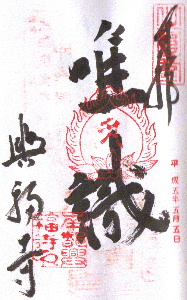 奉拝
唯識
平成五年五月五日
興福寺